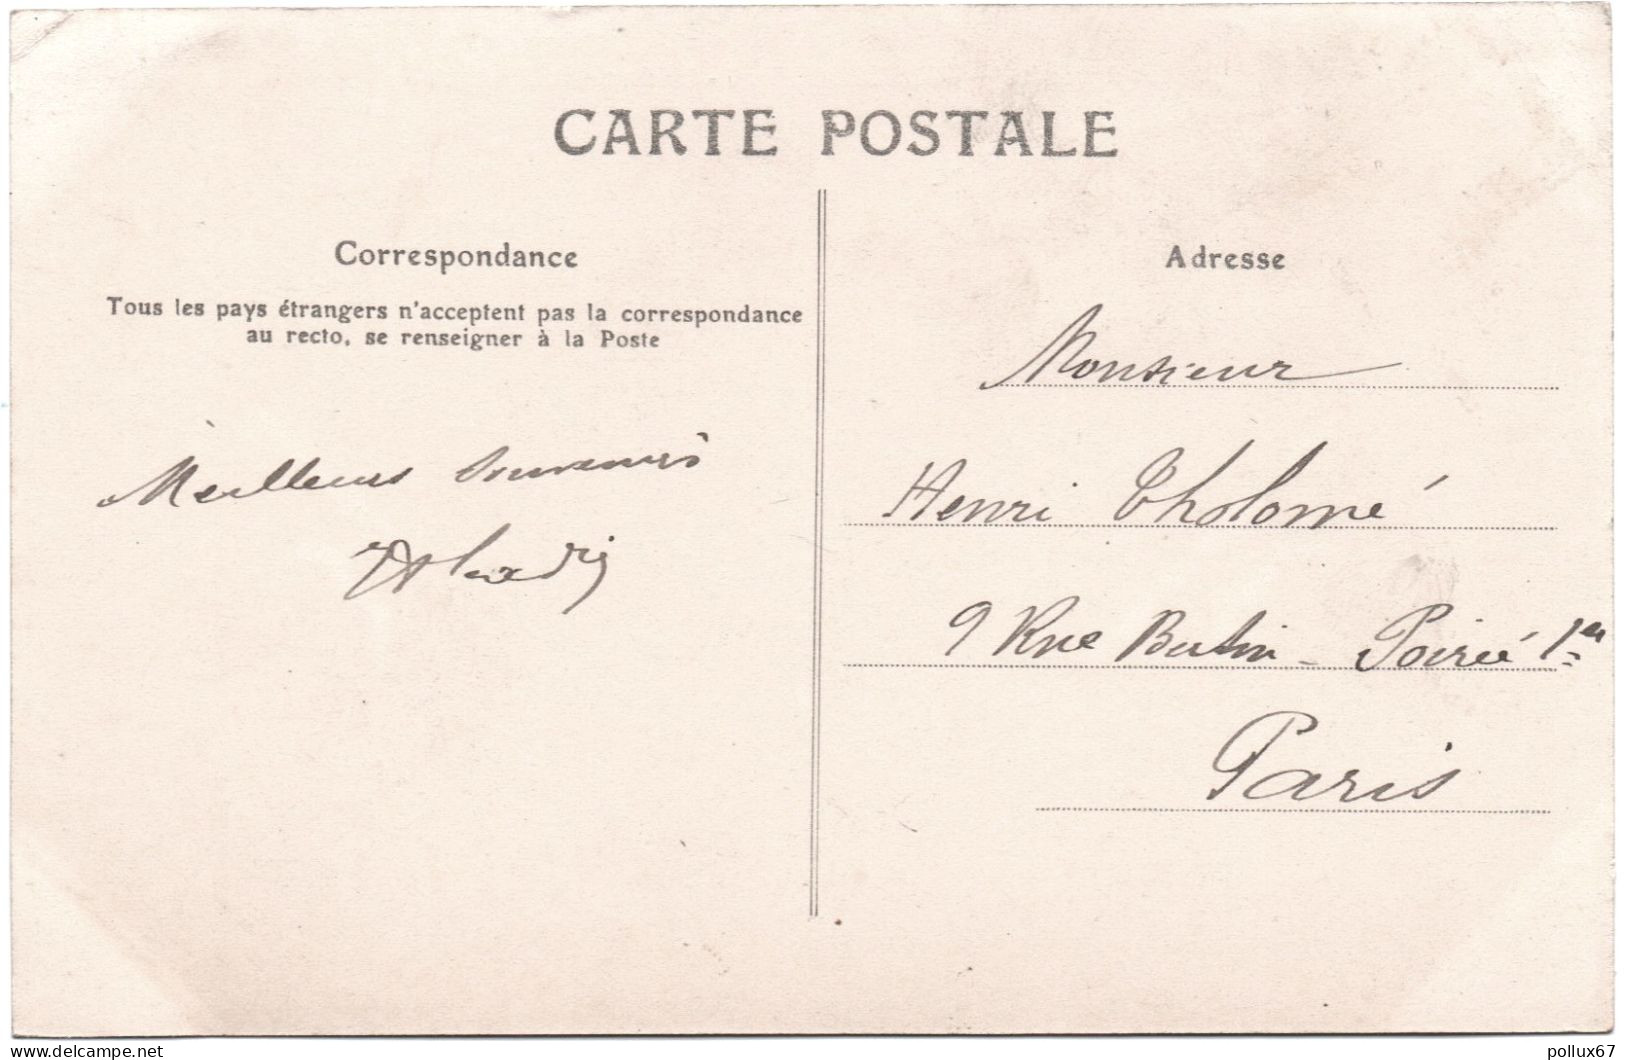 CARTE POSTALE
Correspondance
Tous les pays étrangers n'acceptent pas la correspondance
au recto, se renseigner à la Poste
Meilleurs souvenirs
Adresse
Monsieur
Henri Tholomé
9 Rue Butin - Poirée 1er
Paris
delcampe.net
pollux67